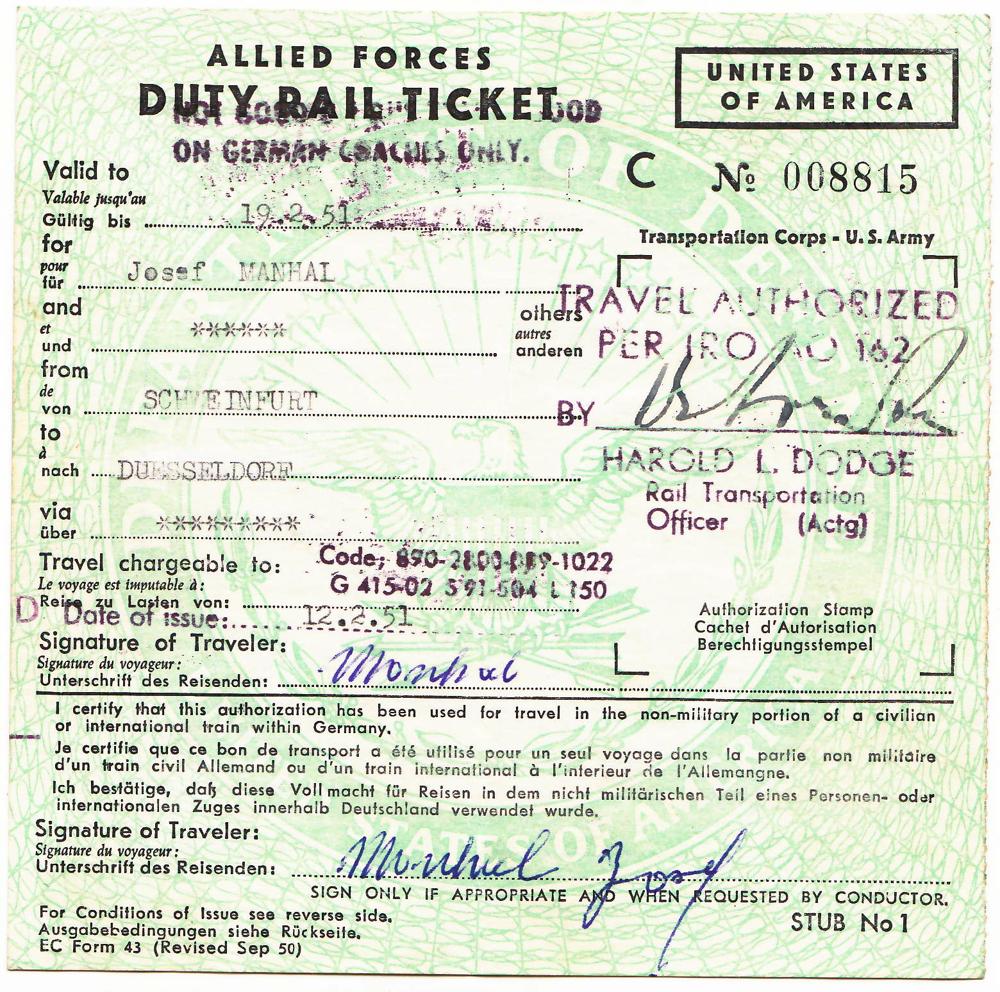 ALLIED FORCES
DUTY RAIL TICKET
UNITED STATES
OF AMERICA
ON GERMAN COACHES ONLY.
C No 008815
Valid to
Valable jusqu'au
Gültig bis 19.2.51
Transportation Corps - U.S. Army
for
pour
für Josef MANHAL
TRAVEL AUTHORIZED
and others
et ****** autres
und anderen
PER IRO AO 162
from
de
von SCHWEINFURT
BY
to
à
nach DUESSELDORF
HAROLD L. DODGE
Rail Transportation
Officer (Actg)
via
über *********
Travel chargeable to: Code; 890-2800-889-1022
Le voyage est imputable à: G 415-02 S91-504 L 150
Reise zu Lasten von:
D Date of issue: 12.2.51
Authorization Stamp
Cachet d'Autorisation
Berechtigungsstempel
Signature of Traveler:
Signature du voyageur:
Unterschrift des Reisenden: Manhal
I certify that this authorization has been used for travel in the non-military portion of a civilian
or international train within Germany.
Je certifie que ce bon de transport a été utilisé pour un seul voyage dans la partie non militaire
d'un train civil Allemand ou d'un train international à l'interieur de l'Allemangne.
Ich bestätige, daß diese Vollmacht für Reisen in dem nicht militärischen Teil eines Personen- oder
internationalen Zuges innerhalb Deutschland verwendet wurde.
Signature of Traveler:
Signature du voyageur:
Unterschrift des Reisenden: Manhal Josef
SIGN ONLY IF APPROPRIATE AND WHEN REQUESTED BY CONDUCTOR.
For Conditions of Issue see reverse side.
Ausgabebedingungen siehe Rückseite.
EC Form 43 (Revised Sep 50)
STUB No 1